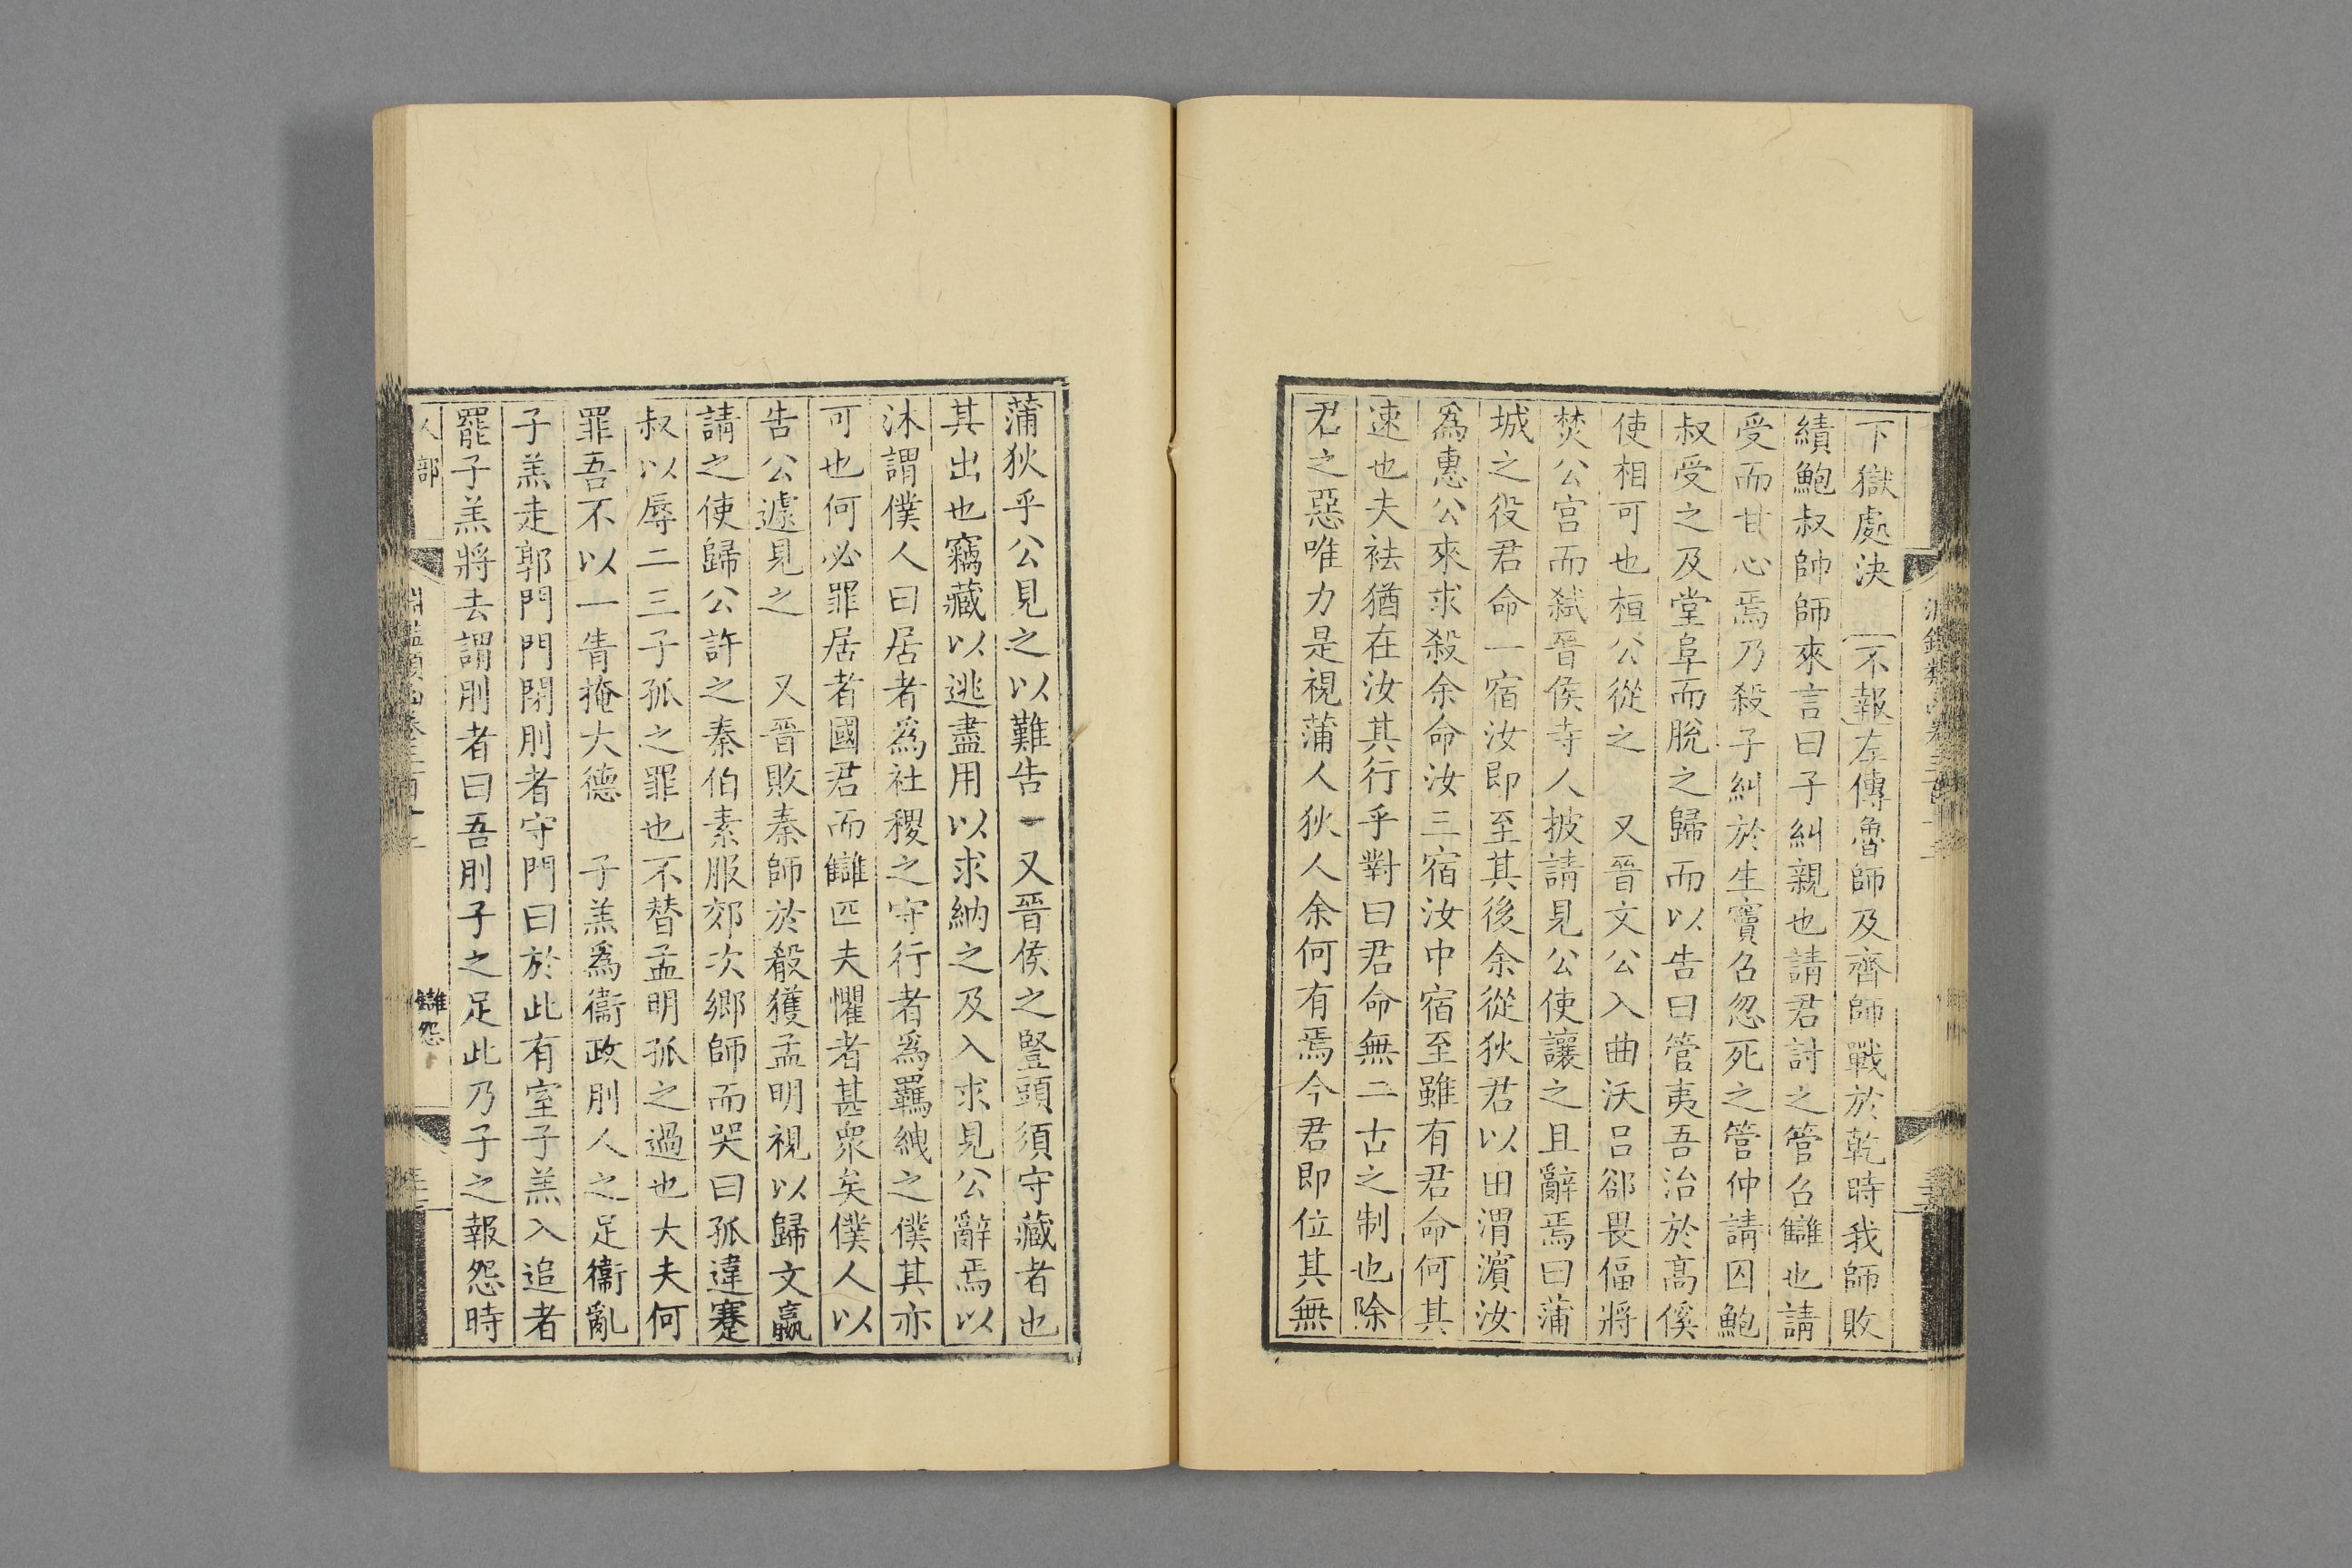 下獄處決　不報左傳魯師及齊師戰於乾時我師敗
績鮑叔帥師來言曰子糾親也請君討之管召讎也請
受而甘心焉乃殺子糾於生竇召忽死之管仲請囚鮑
叔受之及堂阜而脫之歸而以告曰管夷吾治於高傒
使相可也桓公從之　又晉文公入曲沃吕郤畏偪將
焚公宮而弑晉侯寺人披請見公使讓之且辭焉曰蒲
城之役君命一宿汝即至其後余從狄君以田渭濵汝
爲惠公來求殺余命汝三宿汝中宿至雖有君命何其
速也夫袪猶在汝其行乎對曰君命無二古之制也除
君之惡唯力是視蒲人狄人余何有焉今君即位其無
蒲狄乎公見之以難告　又晉侯之豎頭須守藏者也
其出也竊藏以逃盡用以求納之及入求見公辭焉以
沐謂僕人曰居者爲社稷之守行者爲羈絏之僕其亦
可也何必罪居者國君而讎匹夫懼者甚衆矣僕人以
告公遽見之　又晉敗秦師於殽獲孟明視以歸文嬴
請之使歸公許之秦伯素服郊次鄉師而哭曰孤違蹇
叔以辱二三子孤之罪也不替孟明孤之過也大夫何
罪吾不以一眚掩大德　子羔爲衞政刖人之足衞亂
子羔走郭門門閉刖者守門曰於此有室子羔入追者
罷子羔將去謂刖者曰吾刖子之足此乃子之報怨時
人部
讎怨